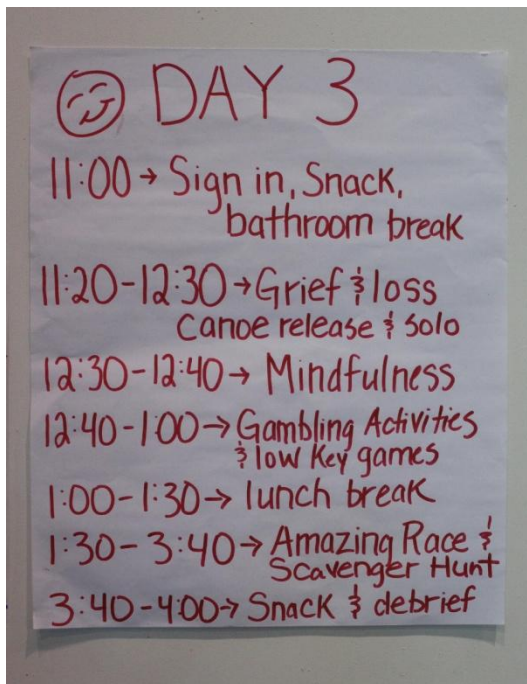 DAY 3
11:00 → Sign in, Snack,
bathroom break
11:20-12:30 → Grief & loss
Canoe release & Solo
12:30-12:40 → Mindfulness
12:40-1:00 → Gambling Activities
& low key games
1:00-1:30 → lunch break
1:30-3:40 → Amazing Race &
Scavenger Hunt
3:40-4:00 → Snack & debrief